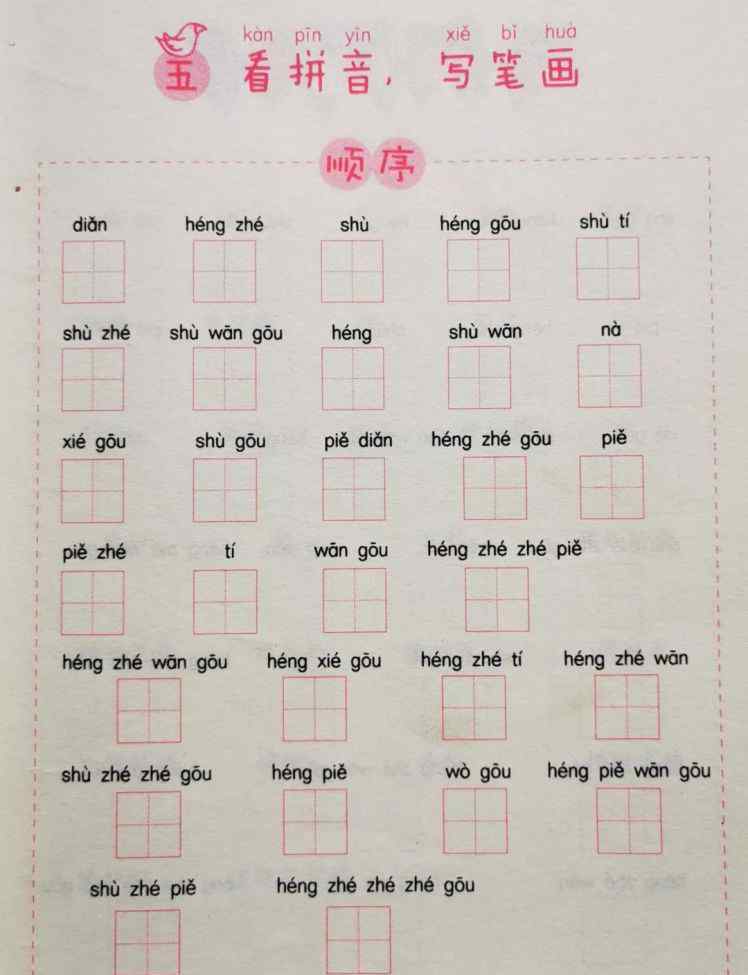 kàn pīn yīn xiě bǐ huà
五 看拼音，写笔画
顺序
diǎn héng zhé shù héng gōu shù tí
shù zhé shù wān gōu héng shù wān nà
xié gōu shù gōu piě diǎn héng zhé gōu piě
piě zhé tí wān gōu héng zhé zhé piě
héng zhé wān gōu héng xié gōu héng zhé tí héng zhé wān
shù zhé zhé gōu héng piě wò gōu héng piě wān gōu
shù zhé piě héng zhé zhé zhé gōu